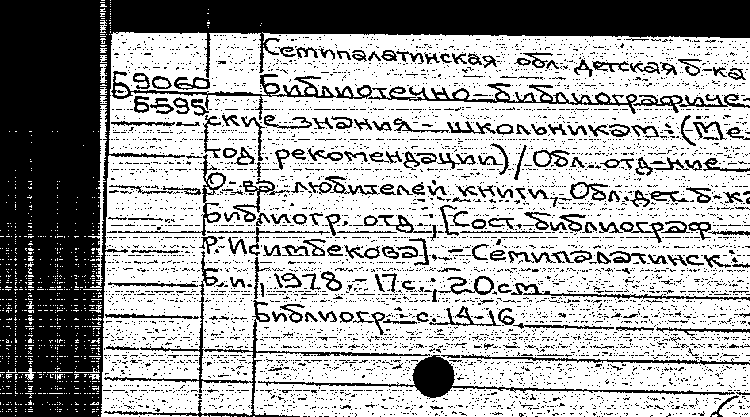 Семипалатинская обл. детская б-ка
Б9060
Б595
Библиотечно-библиографиче-
ские знания - школьникам: (Ме-
тод. рекомендации) / Обл. отд-ние
О-ва любителей книги, Обл. дет. б-ка
Библиогр. отд.; [Сост. библиограф
Р. Исимбекова]. - Семипалатинск:
Б.и., 1978. - 17с.; 20см.
Библиогр.: с. 14-16.